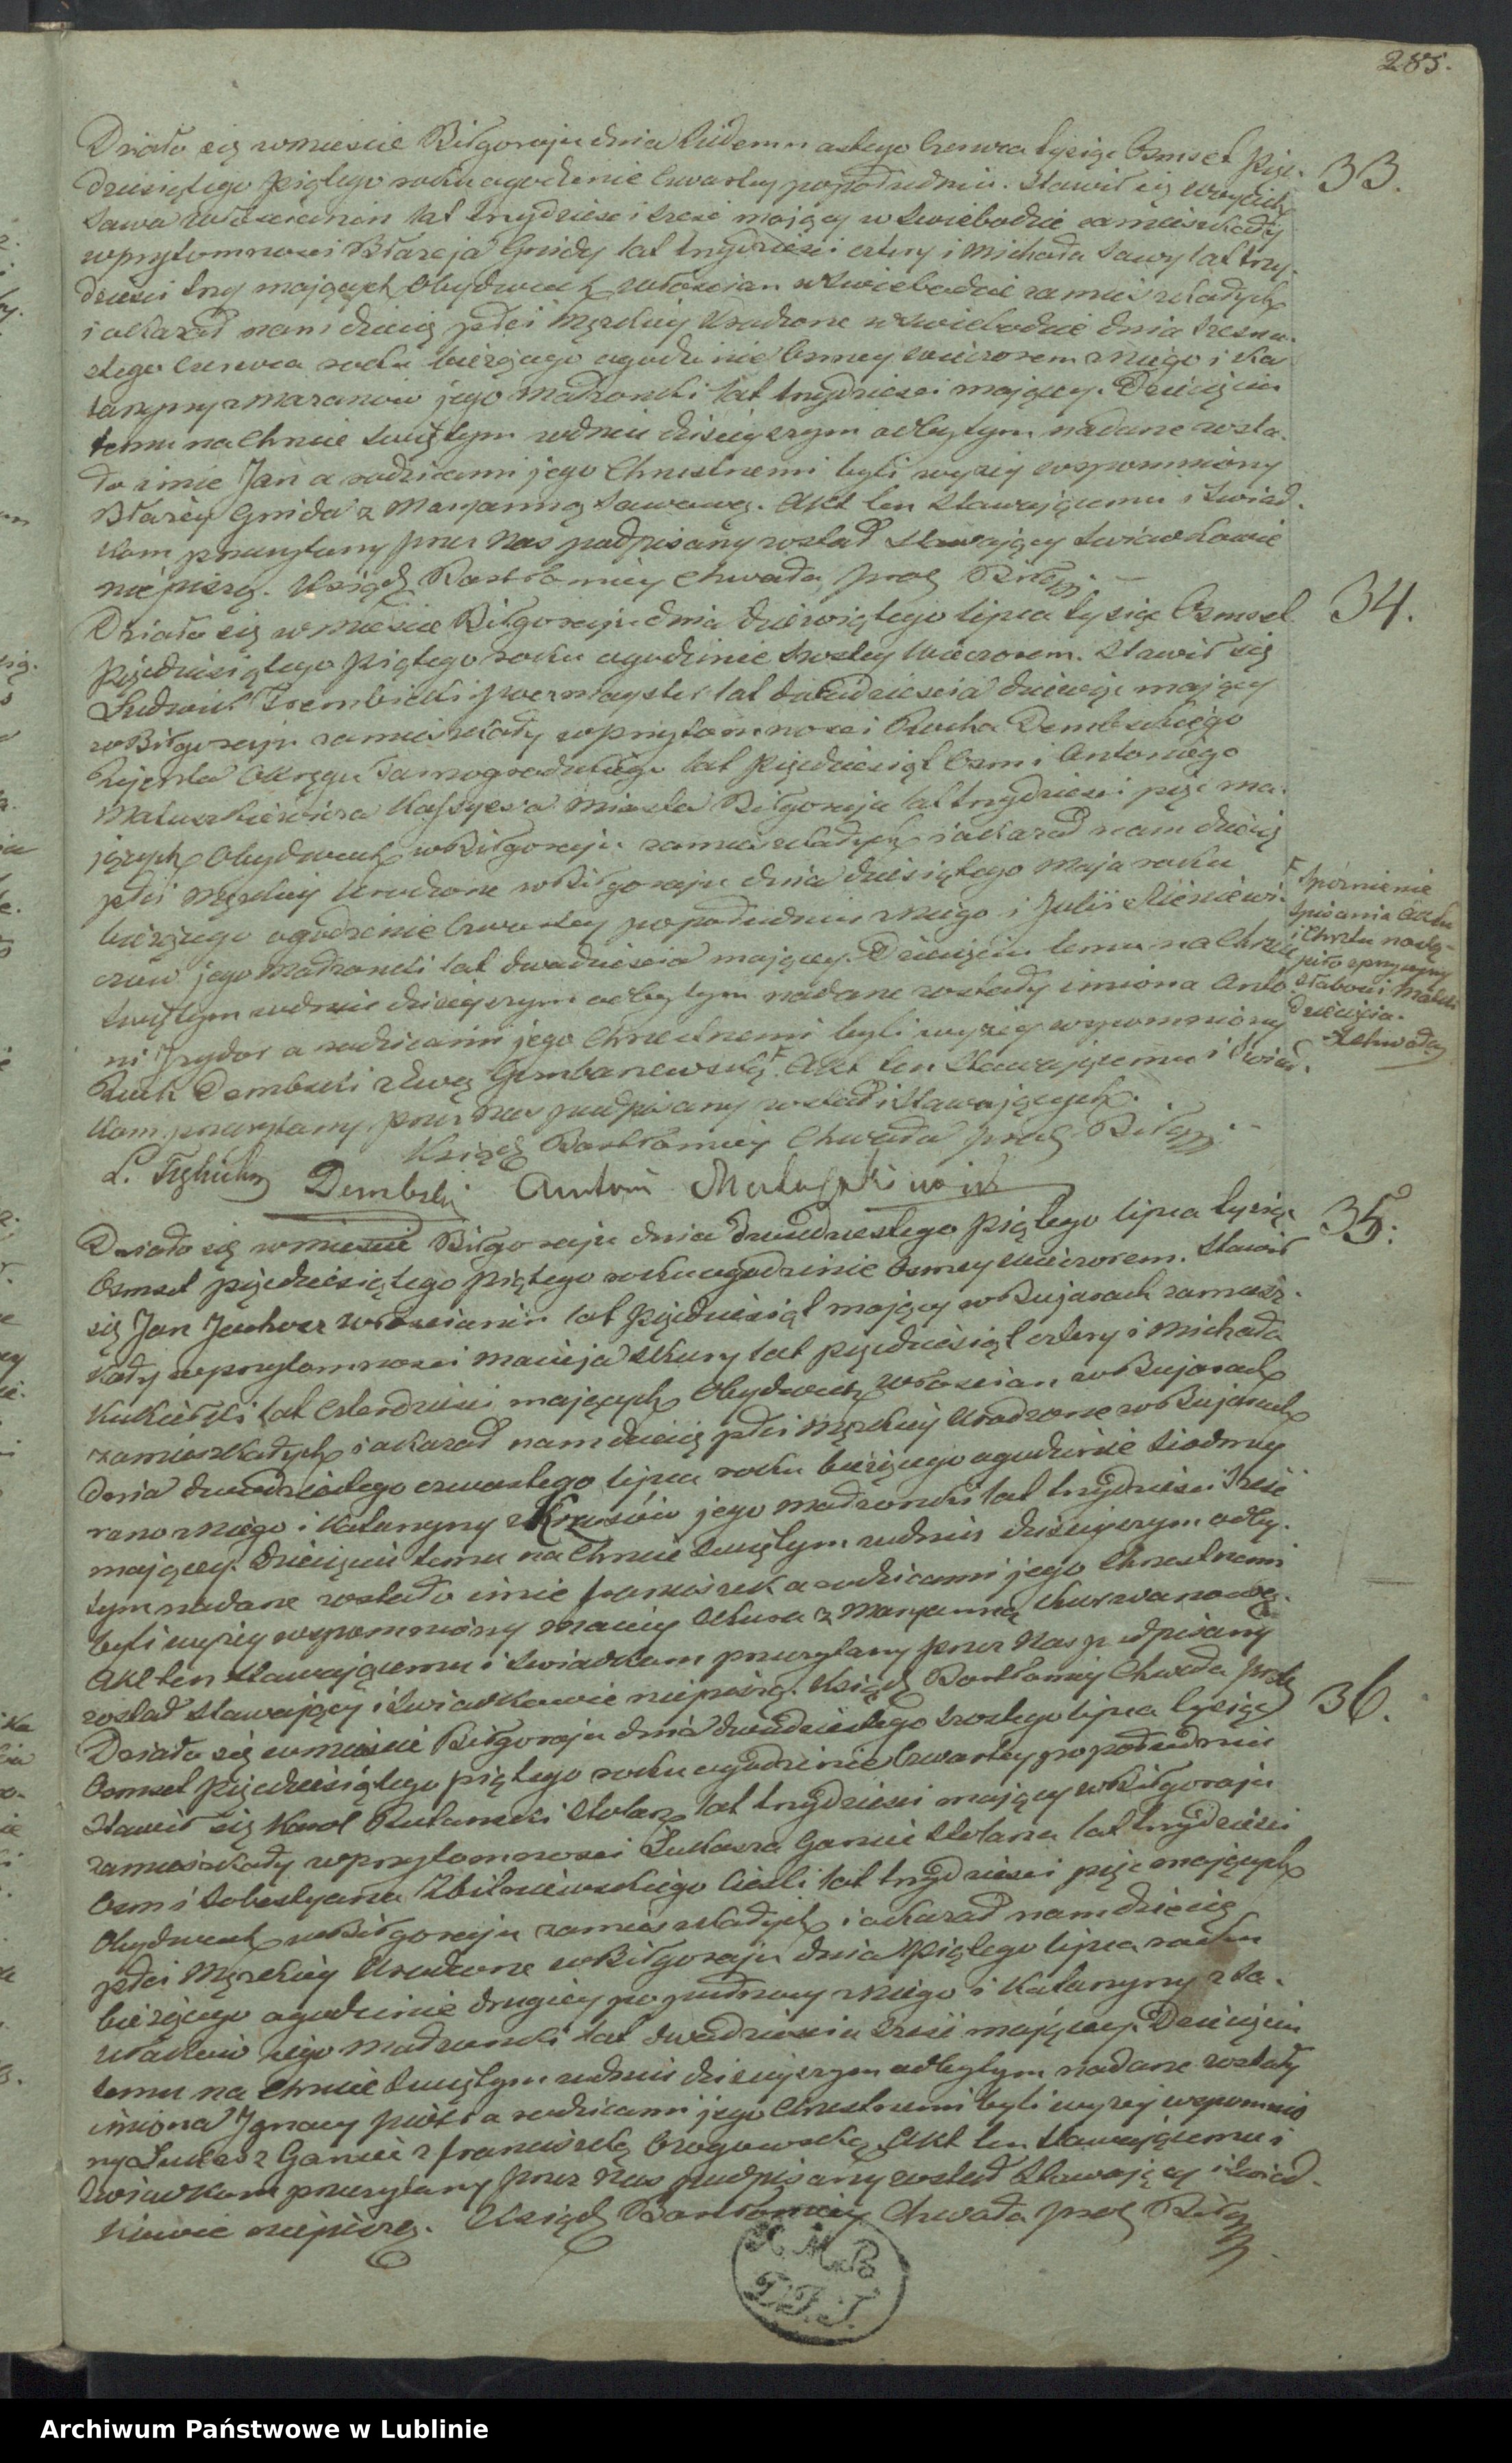 285.
33.
Działo się w mieście Biłgoraju dnia siedemnastego Czerwca tysiąc Osmset pięć-
dziesiątego piątego roku o godzinie czwartey popołudniu. Stawił się Woyciech
Sawa Włościanin lat trzydzieści sześć mający w Swiebodzie zamieszkały
w przytomności Błażeja Gnidy lat trzydzieści cztery i Michała Sawy lat trzy-
dzieści trzy mających Obydwuch włościan w Swiebodzie zamieszkałych
i okazał nam dziecię płci męzkiey Urodzone w Swiebodzie dnia szesna-
stego Czerwca roku bieżącego o godzinie Osmey wieczorem z niego i Ka-
tarzyny z Mazanów jego Małżonki lat trzydzieści mającey. Dziecięciu
temu na Chrzcie Swiętym w dniu dzisieyszym odbytym nadane zosta-
ło imie Jan a rodzicami jego Chrzestnemi byli wyżey wspomniony
Błażey Gnida z Maryanną Sawową. Akt ten Stawającemu i Swiad-
kom przeczytany przez Nas podpisany został Stawający i Swiadkowie
nie piszą. Ksiądz Bartłomiey Chwała prob Biłg
34.
Działo się w Mieście Biłgoraju dnia dziewiątego lipca tysiąc Osmset
pięćdziesiątego piątego roku o godzinie szostey wieczorem. Stawił się
Ludwik lat dwadzieścia dziewięć mający
w Biłgoraju zamieszkały w przytomności Rocha Dembskiego
Rejenta Okręgu Tarnogrodzkiego lat pięćdziesiąt Osm i Antoniego
Matuszkiewicza Kassyera Miasta Biłgoraja lat trzydzieści pięć ma-
jących Obydwuch w Biłgoraju zamieszkałych i okazał nam dziecię
płci męzkiey Urodzone w Biłgoraju dnia dziesiątego Maja roku
bieżącego o godzinie czwartey popołudniu z niego i Julii
jego Małżonki lat dwadzieścia mającey. Dziecięciu temu na Chrzcie
Swiętym w dniu dzisieyszym odbytym nadane zostały imiona Anto-
ni Izydor a rodzicami jego Chrzestnemi byli wyżey wspomniony
Roch Dembski z Ewą. Akt ten Stawającemu i Swiad-
kom przeczytany przez Nas podpisany został i Stawających.
Ksiądz Bartłomiey Chwała prob Biłg
L. Dembski Antoni Matuszkiewicz
Spóźnienie
spisania Aktu
i Chrztu nastą-
piło z przyczyny
słabości Matki
Dziecięcia.
X Chwała
35.
Działo się w mieście Biłgoraju dnia dwudziestego piątego lipca tysiąc
Osmset pięćdziesiątego piątego roku o godzinie Osmey wieczorem. Stawił
się Jan włościanin lat pięćdziesiąt mający w Bujarach zamiesz-
kały w przytomności Macieja Skury lat pięćdziesiąt cztery i Michała
Kukiełki lat czterdzieści mających Obydwuch włościan w Bujarach
zamieszkałych i okazał nam dziecię płci męzkiey Urodzone w Bujarach
dnia dwudziestego czwartego lipca roku bieżącego o godzinie siodmey
rano z niego i Katarzyny z jego małżonki lat trzydzieści sześć
mającey. Dziecięciu temu na Chrzcie Swiętym w dniu dzisieyszym odby-
tym nadane zostało imie Franciszek a rodzicami jego Chrzestnemi
byli wyżey wspomniony Maciey Skura z Maryanną
Akt ten Stawającemu i Swiadkom przeczytany przez Nas podpisany
został Stawający i Swiadkowie nie piszą. Ksiądz Bartłomiey Chwała prob
36.
Działo się w mieście Biłgoraju dnia dwudziestego szostego lipca tysiąc
Osmset pięćdziesiątego piątego roku o godzinie czwartey popołudniu
Stawił się Karol Stolarz lat trzydzieści mający w Biłgoraju
zamieszkały w przytomności Łukasza Stolarza lat trzydzieści
Osm i Sebestyana cieśli lat trzydzieści pięć mających
Obydwuch w Biłgoraju zamieszkałych i okazał nam dziecię
płci Męzkiey Urodzone w Biłgoraju dnia piątego lipca roku
bieżącego o godzinie drugiey popołudniu z niego i Katarzyny
jego Małżonki lat dwadzieścia sześć mającey. Dziecięciu
temu na Chrzcie Swiętym w dniu dzisieyszym odbytym nadane zostały
imiona Ignacy Piotr a rodzicami jego Chrzestnemi byli wyżey wspomnio
ny Łukasz z Franciszką. Akt ten Stawającemu i
Swiadkom przeczytany przez Nas podpisany został Stawający i Swiad-
kowie nie piszą. Ksiądz Bartłomiey Chwała prob Biłg
Archiwum Państwowe w Lublinie